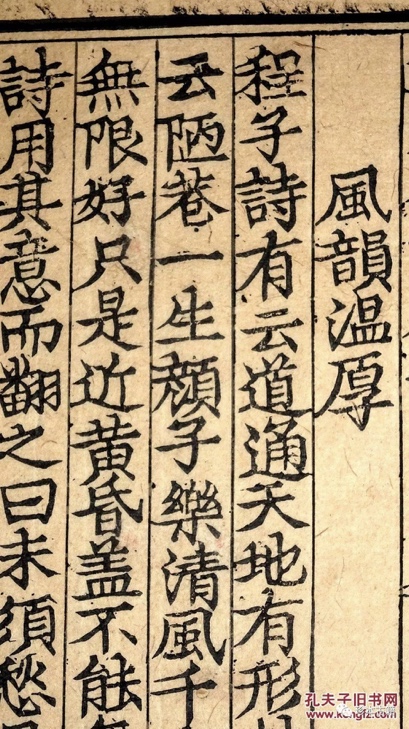 風韻温厚
程子詩有云道通天地有形
云陋巷一生顔子樂清風千
無限好只是近黄昏盖不能
詩用其意而翻之曰未須愁
孔夫子旧书网
www.kongfz.com